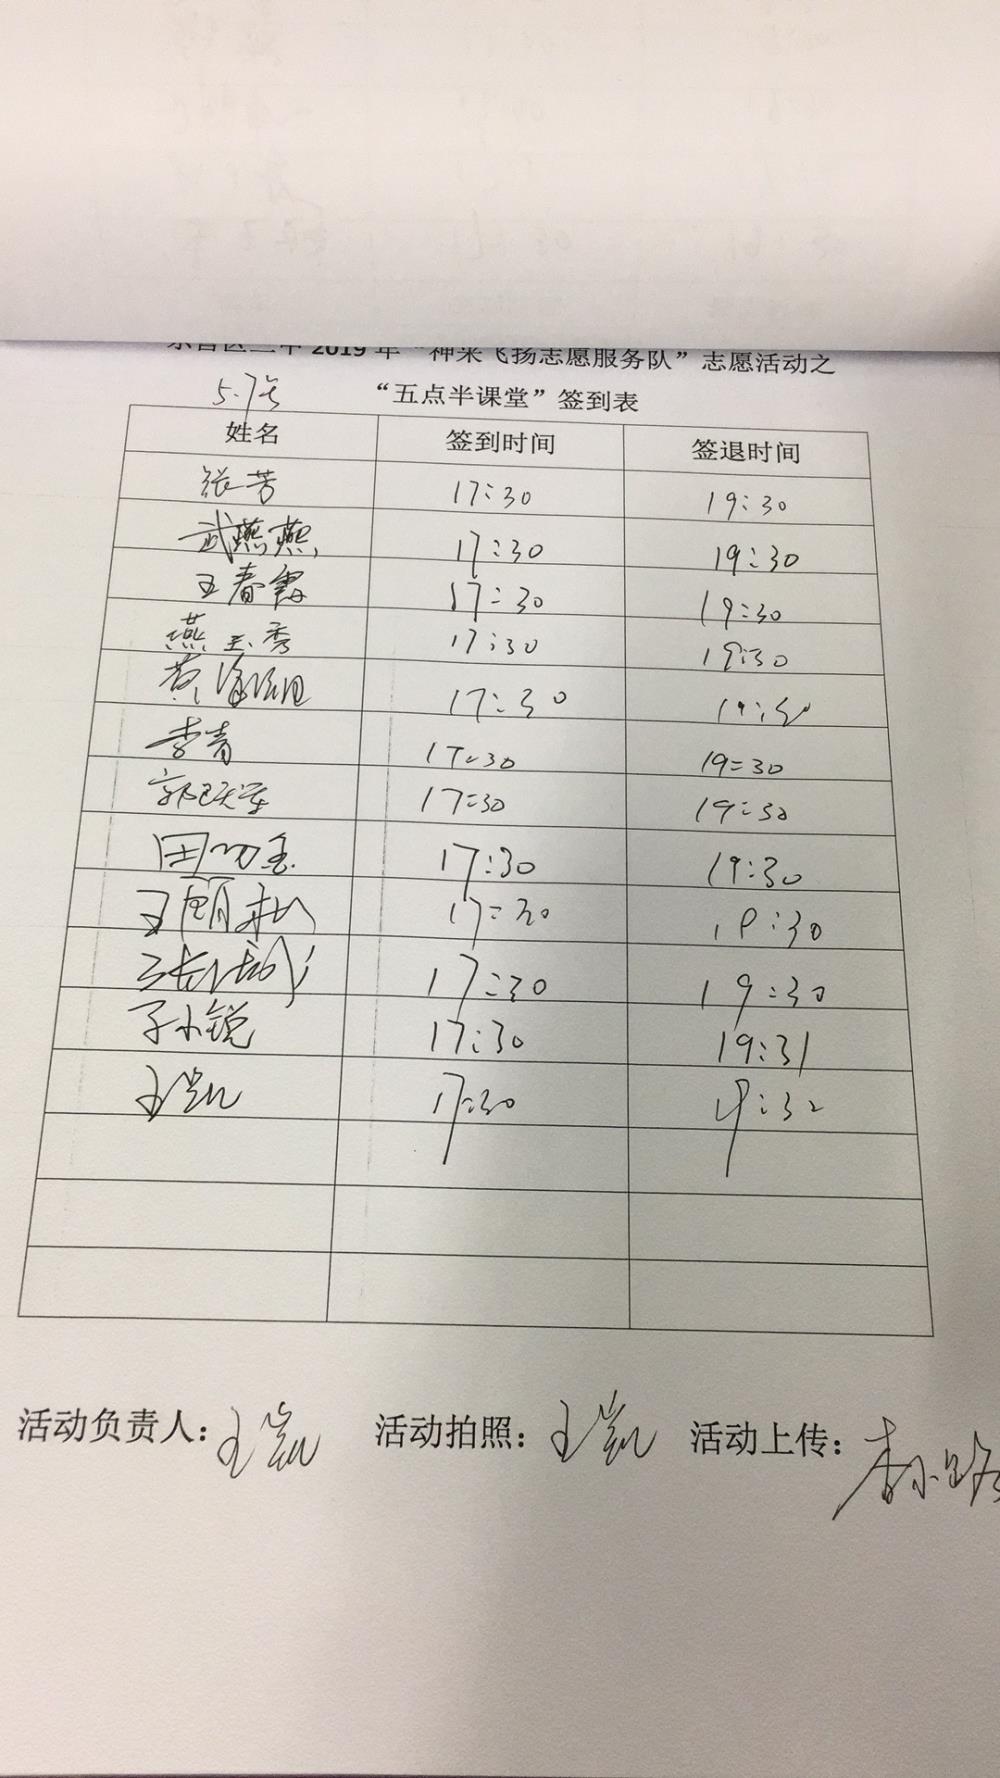 东营区二中2019年“神采飞扬志愿服务队”志愿活动之
5.7号 “五点半课堂”签到表
姓名 签到时间 签退时间
张芳 17:30 19:30
武燕燕 17:30 19:30
王春霞 17:30 19:30
燕玉秀 17:30 19:30
黄 17:30
李青 17:30 19:30
郭跃军 17:30 19:30
田 17:30 19:30
王 17:30 19:30
张 17:30 19:30
于小锐 17:30 19:31
王凯 17:30 19:32
活动负责人:王凯 活动拍照:王凯 活动上传: